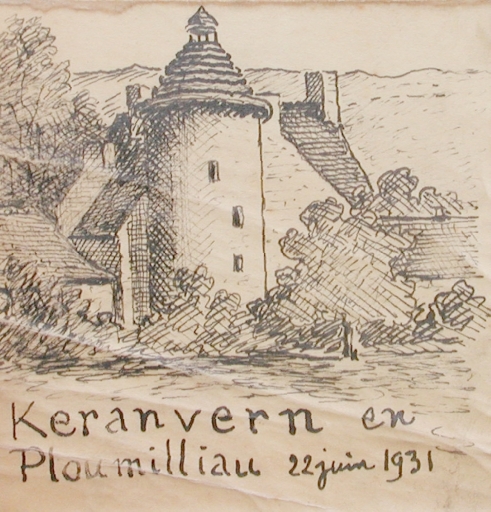 Keranvern en
Ploumilliau 22 juin 1931